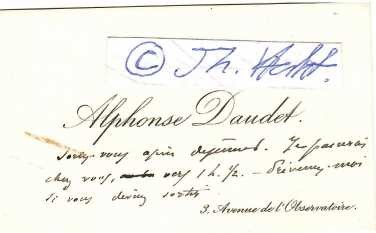 © Th. Hecht.
Alphonse Daudet.
Serez-vous après déjeuner. Je passerais
chez vous, vers 1 h. 1/2. — Prévenez-moi
si vous deviez sortir
3. Avenue de l'Observatoire.